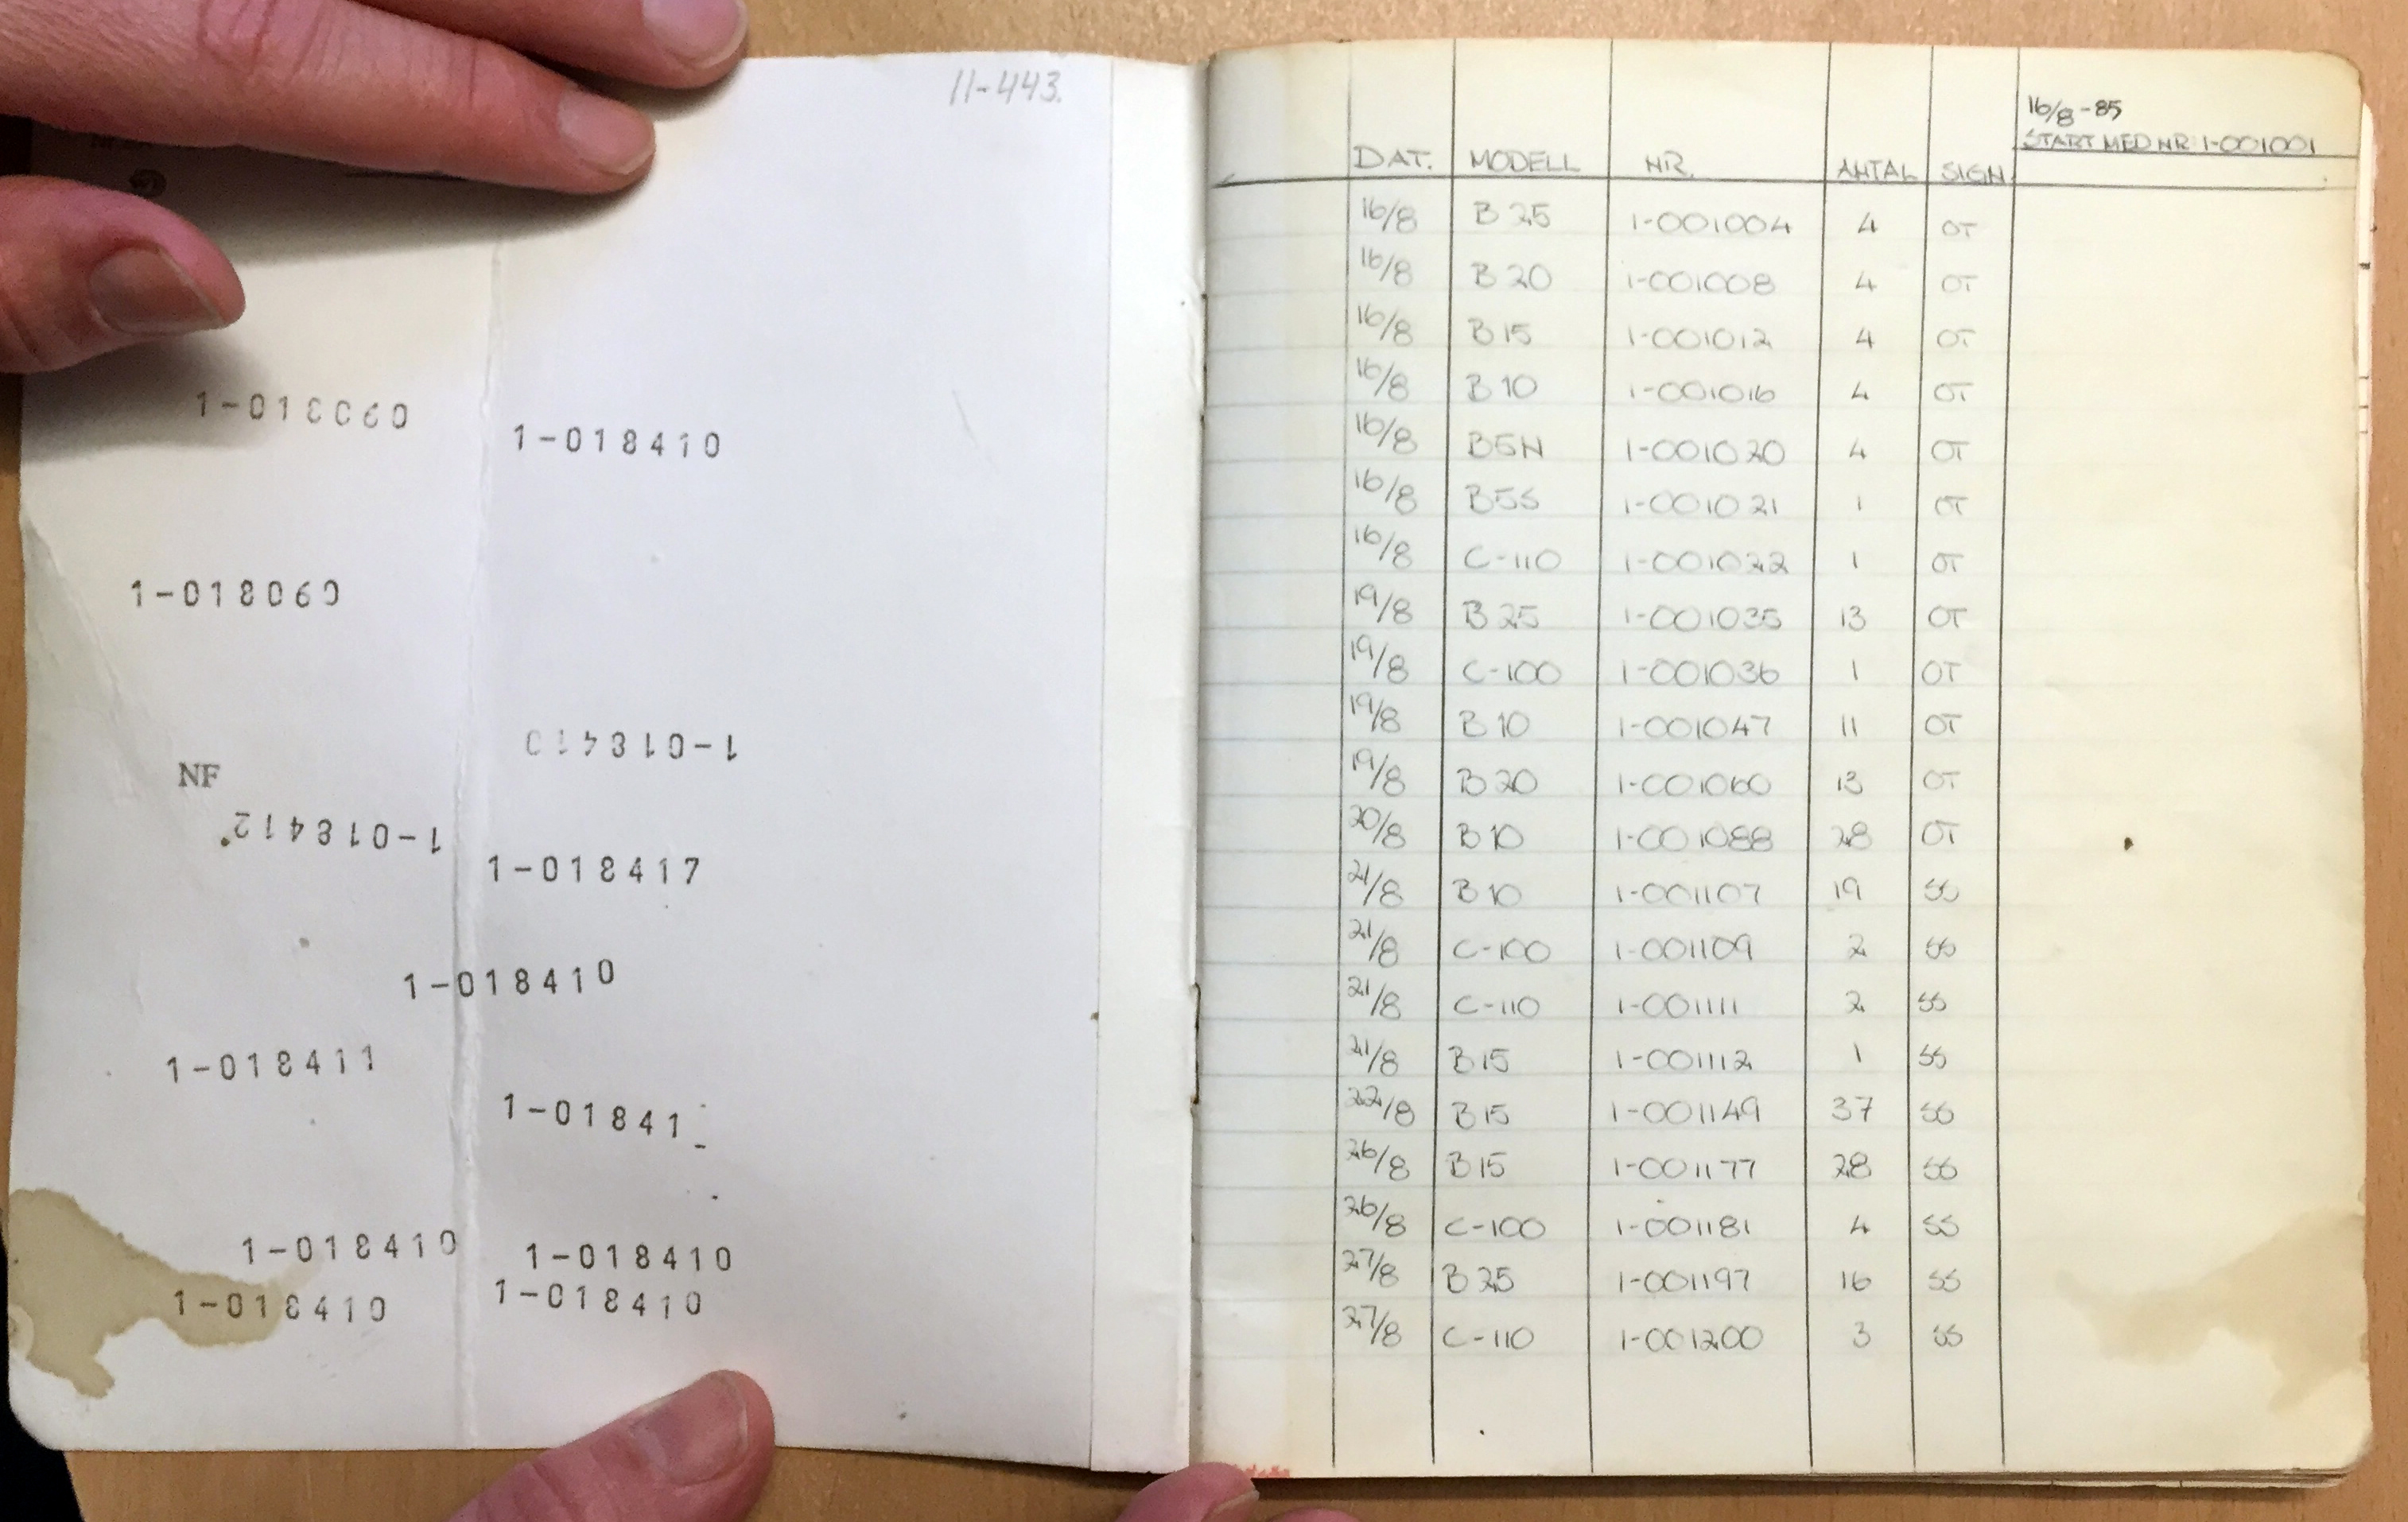 11-443.
1-018060
1-018410
1-018060
1-018410
NF
1-018412
1-018417
1-018410
1-018411
1-01841
1-018410
1-018410
1-018410
1-018410
16/8-85
START MED NR 1-001001
DAT. MODELL NR. ANTAL SIGN
16/8 B25 1-001004 4 OT
16/8 B20 1-001008 4 OT
16/8 B15 1-001012 4 OT
16/8 B10 1-001016 4 OT
16/8 B5N 1-001020 4 OT
16/8 B5S 1-001021 1 OT
16/8 C-110 1-001022 1 OT
19/8 B25 1-001035 13 OT
19/8 C-100 1-001036 1 OT
19/8 B10 1-001047 11 OT
19/8 B20 1-001060 13 OT
20/8 B10 1-001088 28 OT
21/8 B10 1-001107 19 SS
21/8 C-100 1-001109 2 SS
21/8 C-110 1-001111 2 SS
21/8 B15 1-001112 1 SS
22/8 B15 1-001149 37 SS
26/8 B15 1-001177 28 SS
26/8 C-100 1-001181 4 SS
27/8 B25 1-001197 16 SS
27/8 C-110 1-001200 3 SS